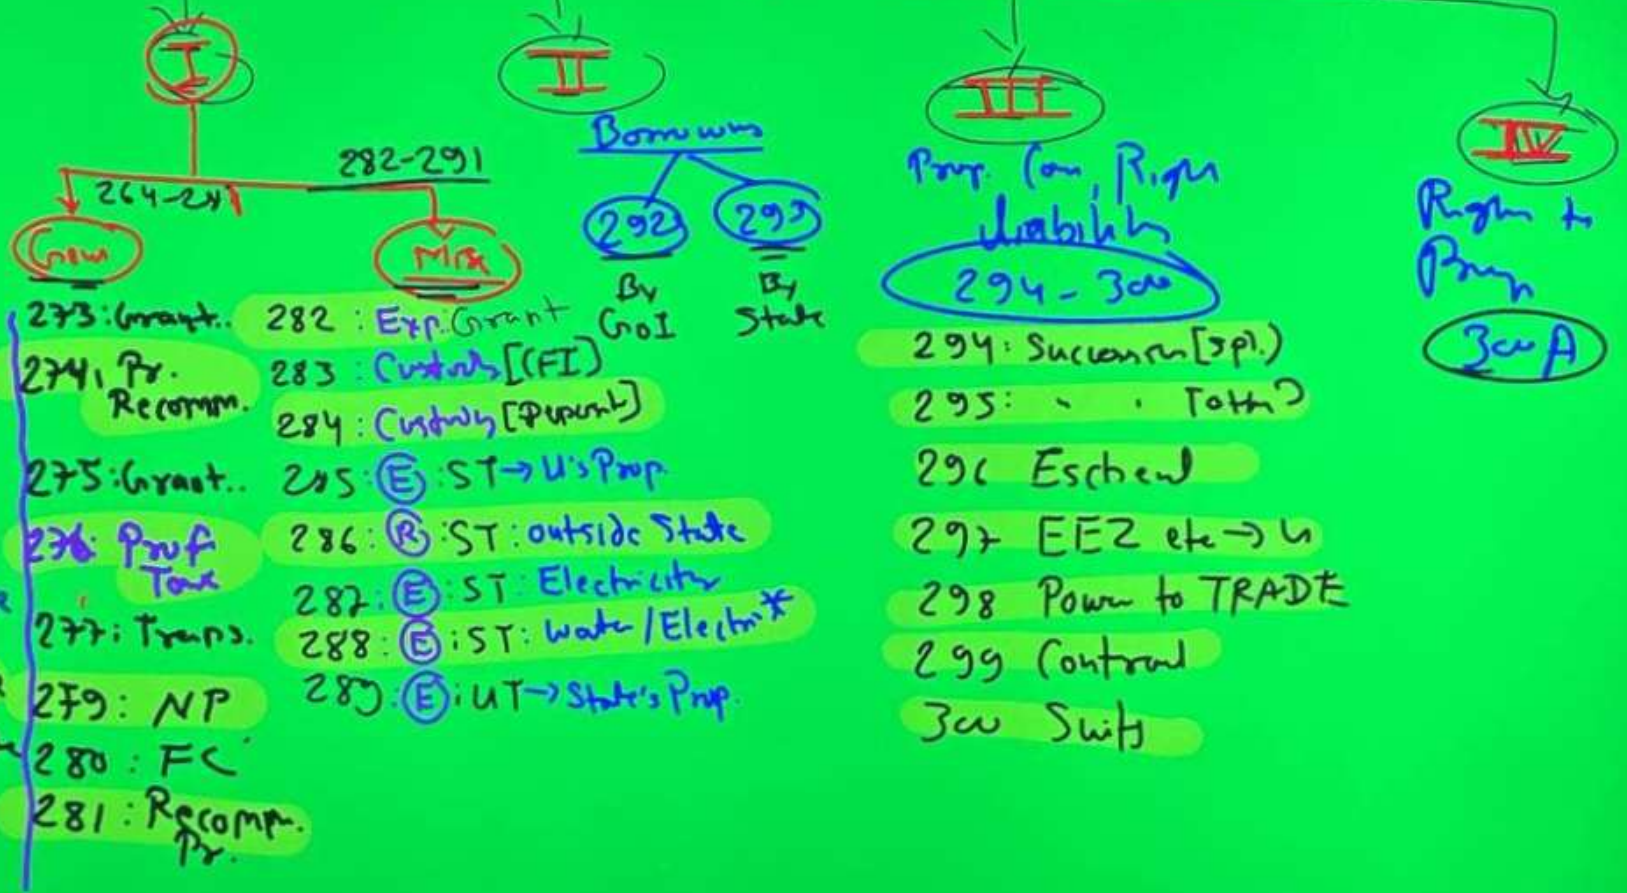 I
II
III
IV
264-281
282-291
Genl
Misc
273: Grant..
274: Pr.
Recomm.
275: Grant..
276: Prof
Tax
277: Trans.
279: NP
280: FC
281: Recomm.
Pr.
282: Exp. Grant
283: Custody [CFI]
284: Custody [Deposit]
285: E: ST → U's Prop.
286: R: ST: outside State
287: E: ST: Electricity
288: E: ST: Water/Electri*
289: E: UT → State's Prop.
Borrowing
292
293
By
GoI
By
State
Prop. Con, Right
Liabilities
294 - 300
294: Succession [spl.)
295: " "
296 Escheat
297 EEZ etc → U
298 Power to TRADE
299 Contract
300 Suits
Right to
Prop
300 A